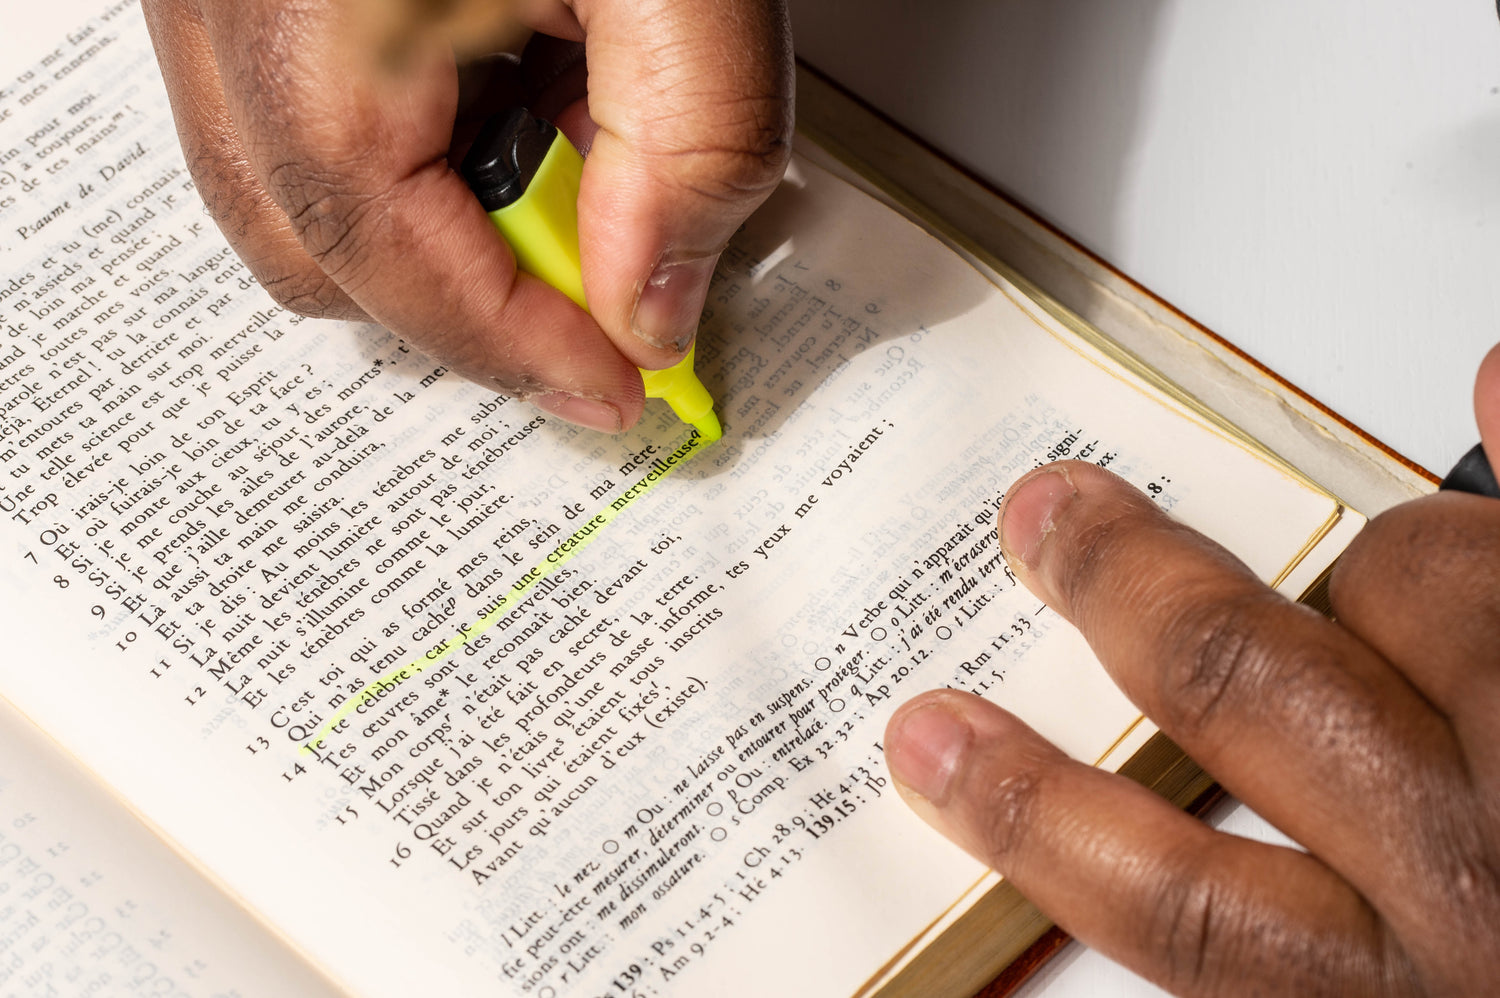 , tu me fais vivre
e mes ennemis.
in pour moi.
e) à toujours.
es de tes mainsᵐ !
Psaume de David.
ondes et tu (me) connais.
m'assieds et quand je
de loin ma pensée ;
and je marche et quand je
toutes mes voies.
parole n'est pas sur ma langue
déjà, Éternel ! tu la connais
m'entoures par derrière et par
tu mets ta main sur moi.
Une telle science est trop merveilleu
Trop élevée pour que je puisse la
7 Où irais-je loin de ton Esprit
Et où fuirais-je loin de ta face ?
8 Si je monte aux cieux, tu y es ;
Si je me couche au séjour des morts*, t'
9 Si je prends les ailes de l'aurore,
Et que j'aille demeurer au-delà de la mer
10 Là aussi, ta main me conduira,
Et ta droite me saisira.
11 Si je dis : Au moins les ténèbres me
La nuit devient lumière autour de moi ;
12 Même les ténèbres ne sont pas ténébreuses
La nuit s'illumine comme le jour,
Et les ténèbres comme la lumière.
13 C'est toi qui as formé mes reins,
Qui m'as tenu cachéᵖ dans le sein de ma mère.
14 Je te célèbre ; car je suis une créature merveilleuseq
Tes œuvres sont des merveilles,
Et mon âme* le reconnaît bien.
15 Mon corpsʳ n'était pas caché devant toi,
Lorsque j'ai été fait en secret,
Tissé dans les profondeurs de la terre.
16 Quand je n'étais qu'une masse informe, tes yeux me voyaient ;
Et sur ton livreˢ étaient tous inscrits
Les jours qui étaient fixés,
Avant qu'aucun d'eux (existe).
l Litt. : le nez. ○ m Ou : ne laisse pas en suspens. ○ n Verbe qui n'apparaît qu'ici signi-
fie peut-être mesurer, déterminer ou entourer pour protéger. ○ o Litt. : m'écraser
sions ont : me dissimuleront. ○ p Ou : entrelacé. ○ q Litt. : j'ai été rendu terri
○ r Litt. : mon ossature. ○ s Comp. Ex 32.32 ; Ap 20.12. ○ t Litt. :
139 : Ps 11.4-5 ; 1 Ch 28.9 ; Hé 4.13 ; Rm 11.33
; Am 9.2-4 ; Hé 4.13. 139.15 : Jb